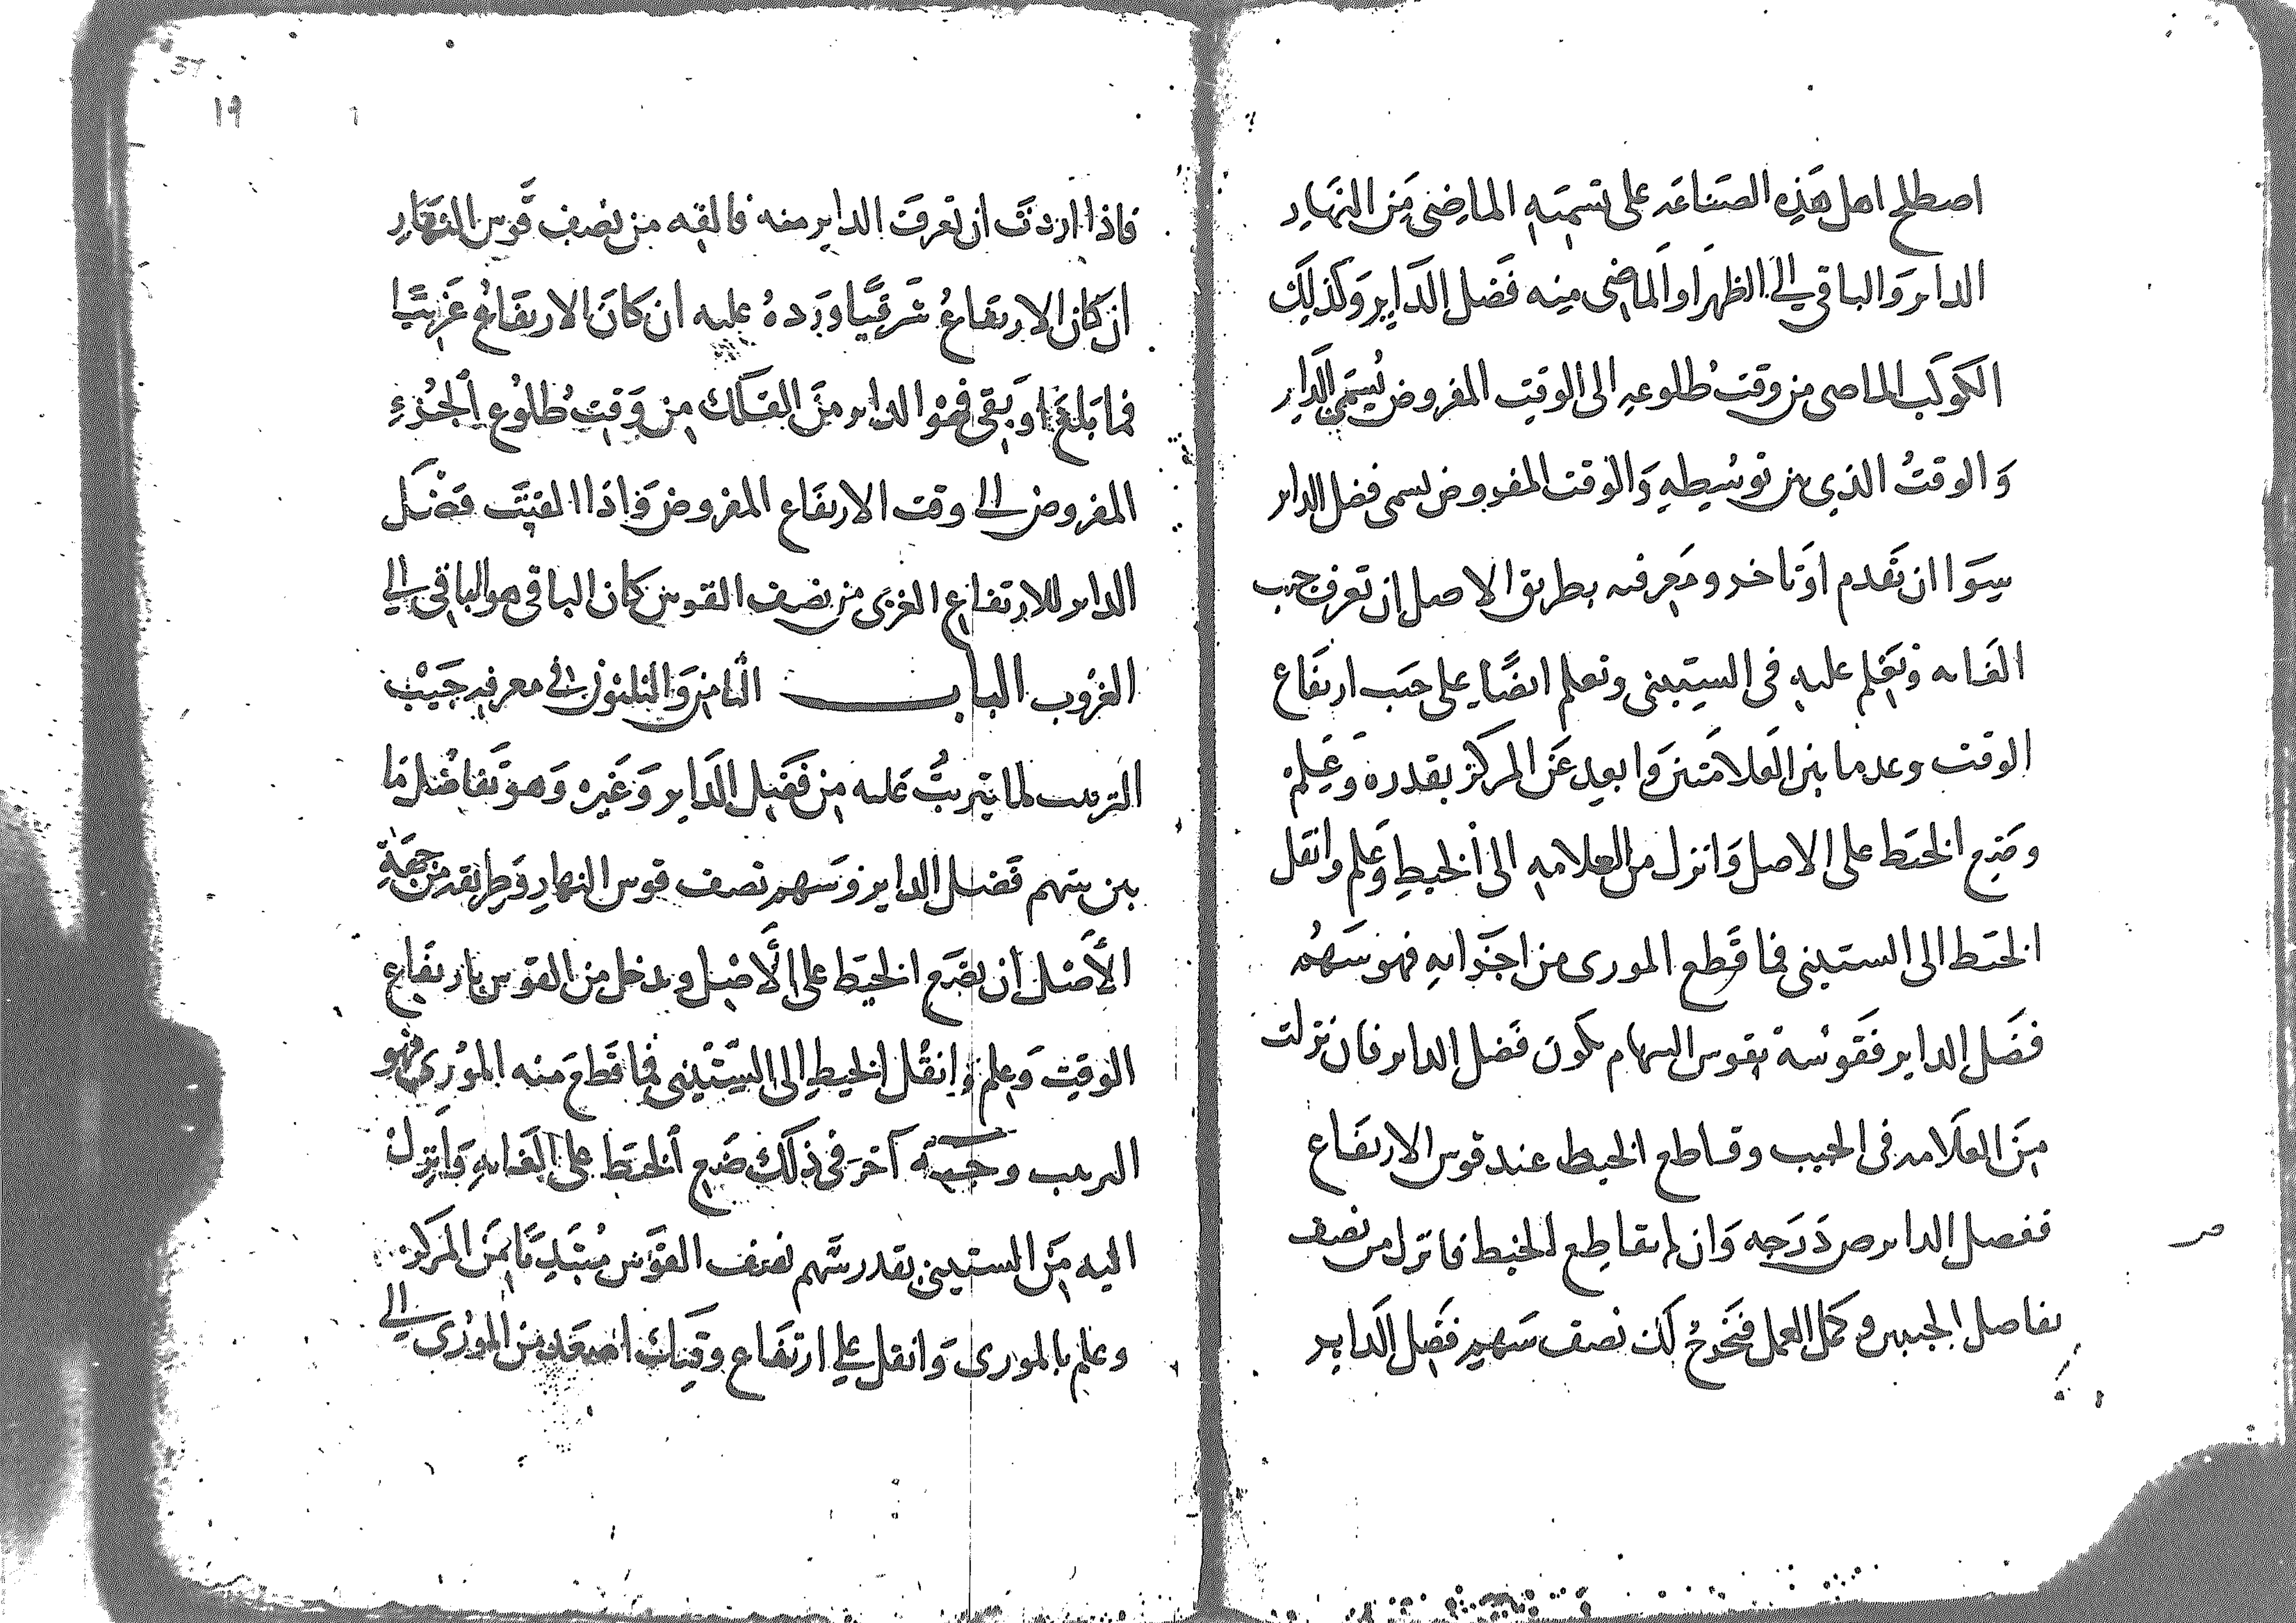 اصطلح اهل هذه الصناعه على تسميه الماضى من النهار
الداير والباقى الى الظهر او الماضى منه فضل الداير وكذلك
الكوكب الماضى من وقت طلوعه الى الوقت المفروض يسمى الداير
والوقت الذى من توسطه والوقت المفروض يسمى فضل الداير
سوا ان تقدم او تاخر ومعرفته بطريق الاصل ان تعرف جيب
الغايه وتعلم عليه فى الستينى وتعلم ايضا على جيب ارتفاع
الوقت وعد ما بين العلامتين وابعد عن المركز بقدره وعلم
وضع الخيط على الاصل وانزل من العلامه الى الخيط وعلم وانقل
الخيط الى الستينى فما قطع المورى من اجزايه فهو سهم
فضل الداير فقوسه بقوس السهام يكون فضل الداير فان نزلت
من العلامه فى الجيب وقاطع الخيط عند قوس الارتفاع
ففضل الداير ص درجه وان لم تقاطع الخيط فانزل من نصف
تفاضل الجيبين وكمل العمل فتخرج لك نصف سهم فضل الداير
19
فاذا اردت ان تعرف الداير منه فالقه من نصف قوس النهار
ان كان الارتفاع شرقيا وزده عليه ان كان الارتفاع غربيا
فما بلغ او بقى فهو الداير من الفلك من وقت طلوع الجزء
المفروض الى وقت الارتفاع المفروض واذا القيت فضل
الداير للارتفاع الغربى من نصف القوس كان الباقى هو الباقى الى
الغروب الباب الثامن والثلثون فى معرفه جيب
الترتيب لما يترتب عليه من فضل الداير وغيره وهو تفاضل ما
بين سهم فضل الداير وسهم نصف قوس النهار وطريقه من جهة
الأصل ان تضع الخيط على الأصل وتدخل من القوس بارتفاع
الوقت وعلم وانقل الخيط الى الستينى فما قطع منه المورى فهو
الترتيب وجه آخر فى ذلك ضع الخيط على الغايه وانزل
اليه من الستينى بقدر سهم نصف القوس مبتديا من المركز
وعلم بالمورى وانقل على ارتفاع وقتك اصعد من المورى الى